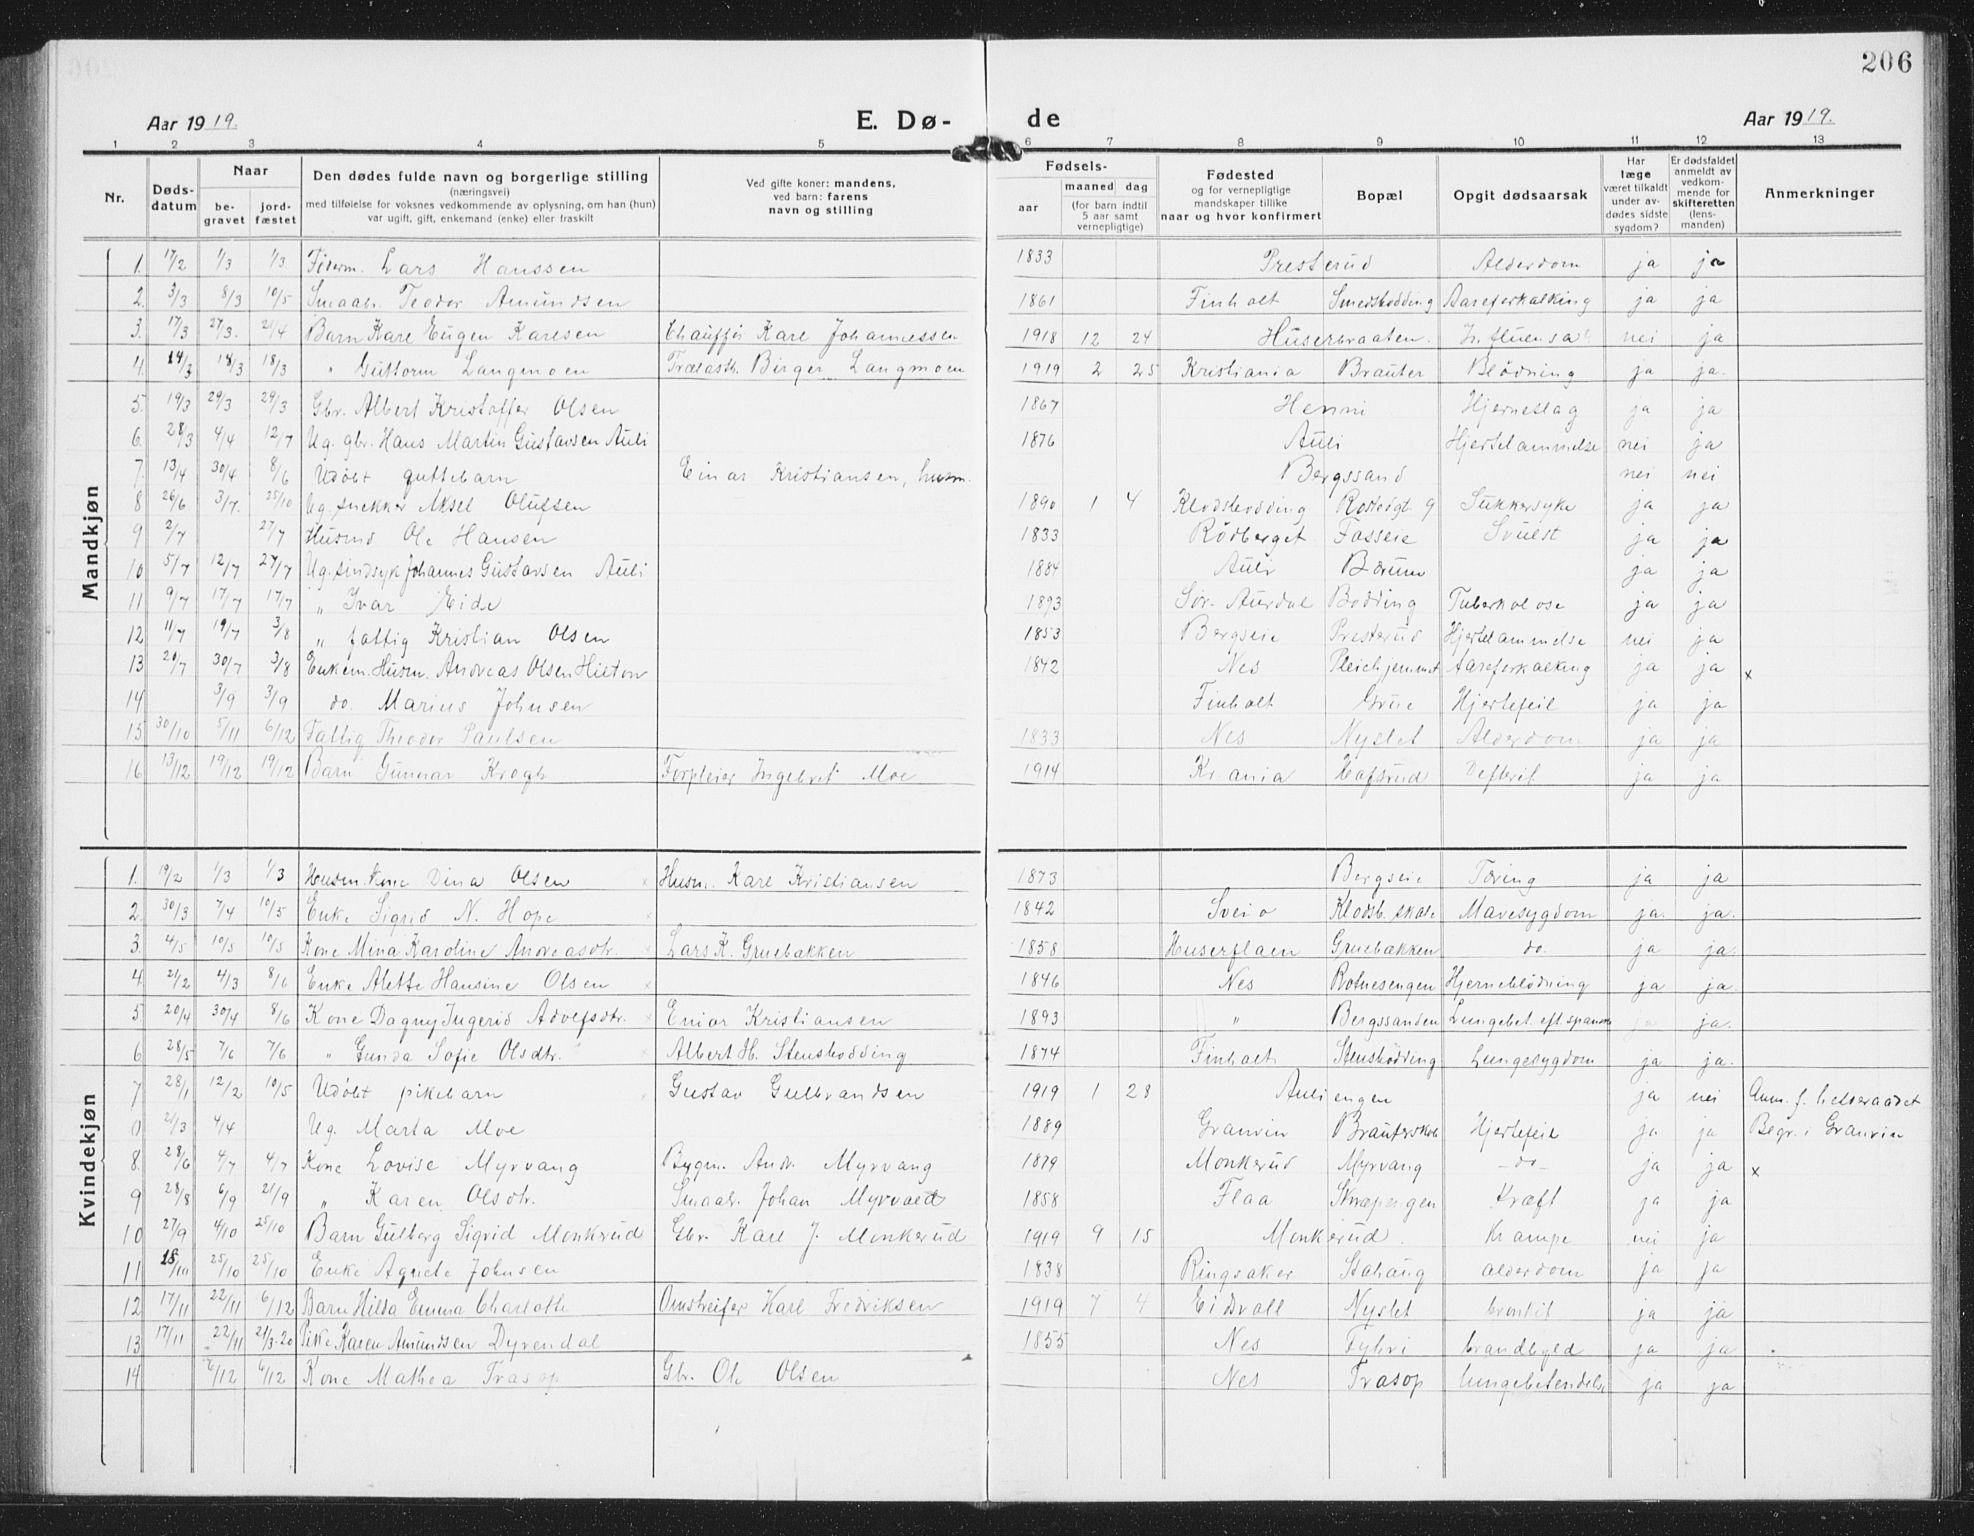 206
Aar 1919. E. Dø- de Aar 1919.
1 2 3 4 5 6 7 8 9 10 11 12 13
Nr. Døds-datum Naar be-gravet jord-fæstet Den dødes fulde navn og borgerlige stilling (næringsvei) med tilføielse for voksnes vedkommende av oplysning, om han (hun) var ugift, gift, enkemand (enke) eller fraskilt Ved gifte koner: mandens, ved barn: farens navn og stilling Fødsels- aar maaned dag (for barn indtil 5 aar samt vernepligtige) Fødested og for vernepligtige mandskaper tillike naar og hvor konfirmert Bopæl Opgit dødsaarsak Har læge været tilkaldt under av-dødes sidste sygdom? Er dødsfaldet anmeldt av vedkom-mende for skifteretten (lens-manden) Anmerkninger
Mandkjøn
1. 17/2 1/3 1/3 Føderm. Lars Hanssen 1833 Presterud Alderdom ja ja
2. 3/3 8/3 10/5 Smaabr. Teodor Amundsen 1861 Finholt Smedsbodding Aareforkalking ja ja
3. 17/3 27/3. 21/4 Barn Kare Eugen Karlsen Chauffør Karl Johannessen 1918 12 24 Huserbraaten. Influensa nei ja
4. 14/3 18/3 18/3 " Guttorm Langmoen Trælasth. Birger Langmoen 1919 2 25 Kristiania Brauter Blödning ja ja.
5. 19/3 29/3 29/3 Gbr. Albert Kristoffer Olsen 1867 Henni Hjerneslag ja ja
6. 28/3 4/4 12/7 Ug. gbr. Hans Martin Gustavsen Auli 1876 Auli Hjertelammelse nei ja
7. 13/4 30/4 8/6 Udöbt guttebarn Einar Kristiansen, husm. Bergssand nei nei
8 26/6 3/7. 25/10 Ug. snekker Aksel Olufsen 1890 1 4 Klodsbodding Sukkersyke ja ja
9 2/7 27/7 Husmd Ole Hansen 1833 Rödberget Fosseie Svulst ja ja
10 5/7 12/7 27/7 Ug. sindsyk Johannes Gustavsen Auli 1884 Auli Bærum ja ja
11 9/7 17/7 17/7 " Ivar Eide 1893 Sør. Aurdal Bodding Tuberkulose ja ja
12 11/7 19/7 3/8 " fattig Kristian Olsen 1853 Bergseie Presterud Hjertelammelse nei ja
13 20/7 30/7 3/8 Enkem. Husm. Andreas Olsen Hieton 1842 Nes Pleiehjemmet Aareforkalking ja ja x
14 3/9 3/9 do. Marius Johnsen Finholt Grue Hjertefeil ja ja
15 30/10 5/11 6/12 Fattig Theodor Paulsen 1833 Nes Nyslet Alderdom. ja ja
16 13/12 19/12 19/12 Barn Gunnar Krogh Forpleier Ingebret Moe 1914 Kr.ania Hafsrud Defterit ja ja
Kvindekjøn
1. 19/2 1/3 1/3 Husm. kone Dina Olsen Husm. Karl Kristiansen 1873 Bergseie Tæring ja ja
2. 30/3 7/4 10/5 Enke Sigrid N. Hope 1842 Sveio Klodsb. skole Mavesygdom ja. ja.
3. 4/5 10/5 10/5 Kone Mina Karoline Andreasdtr. Lars K. Gruebakken 1858 Huserflaen Gruebakken do. ja ja.
4. 21/2 4/3 8/6 Enke Alette Hansine Olsen 1846 Nes Rotnesengen Hjerneblödning ja ja.
5. 20/4 30/4 8/6 Kone Dagny Ingerid Adolfsdtr. Einar Kristiansen 1893 " Bergssanden Lungebet. eft. spansk ja ja.
6 28/5 7/6 7/6 " Gunda Sofie Olsdtr. Albert H. Stensbodding 1874 Finholt Stensbödding Lungesygdom ja ja.
7 28/1 12/2 10/5 Udöbt pikebarn Gustav Gulbrandsen 1919 1 28 Auliengen ja nei Anm. f. helseraadet
0 2/3 4/4 Ug. Marta Moe 1889 Granvin Brauterskole Hjertefeil ja ja Begr. i Granvin
8. 28/6 4/7 4/7 Kone Lovise Myrvang Bygm. Andr. Myrvang 1879 Monkerud Myrvang -do- ja ja x
9 28/8 6/9 21/9 " Karen Olsdtr. Smaabr. Johan Myrvold 1858 Flaa Kræft ja ja
10 27/9 4/10 25/10 Barn Gulborg Sigrid Monkrud Gbr. Karl J. Monkerud 1919 9 15 Monkerud. Krampe nei ja
11 18/10 25/10 25/10 Enke Agnete Johnsen 1838 Ringsaker Stahaug alderdom ja ja
12 17/11 22/11 6/12 Barn Hilda Emma Charlotte Omstreifer Karl Fredriksen 1919 7 4 Eidsvoll Nyslet bronkit ja ja
13 17/11 22/11 21/3-20 Pike Karen Amundsen Dyrendal 1855 Nes Fylvi brandbyld ja ja
14 6/12 6/12 Kone Mathea Trasop Gbr. Ole Olsen Nes Trasop lungebetendelse ja ja